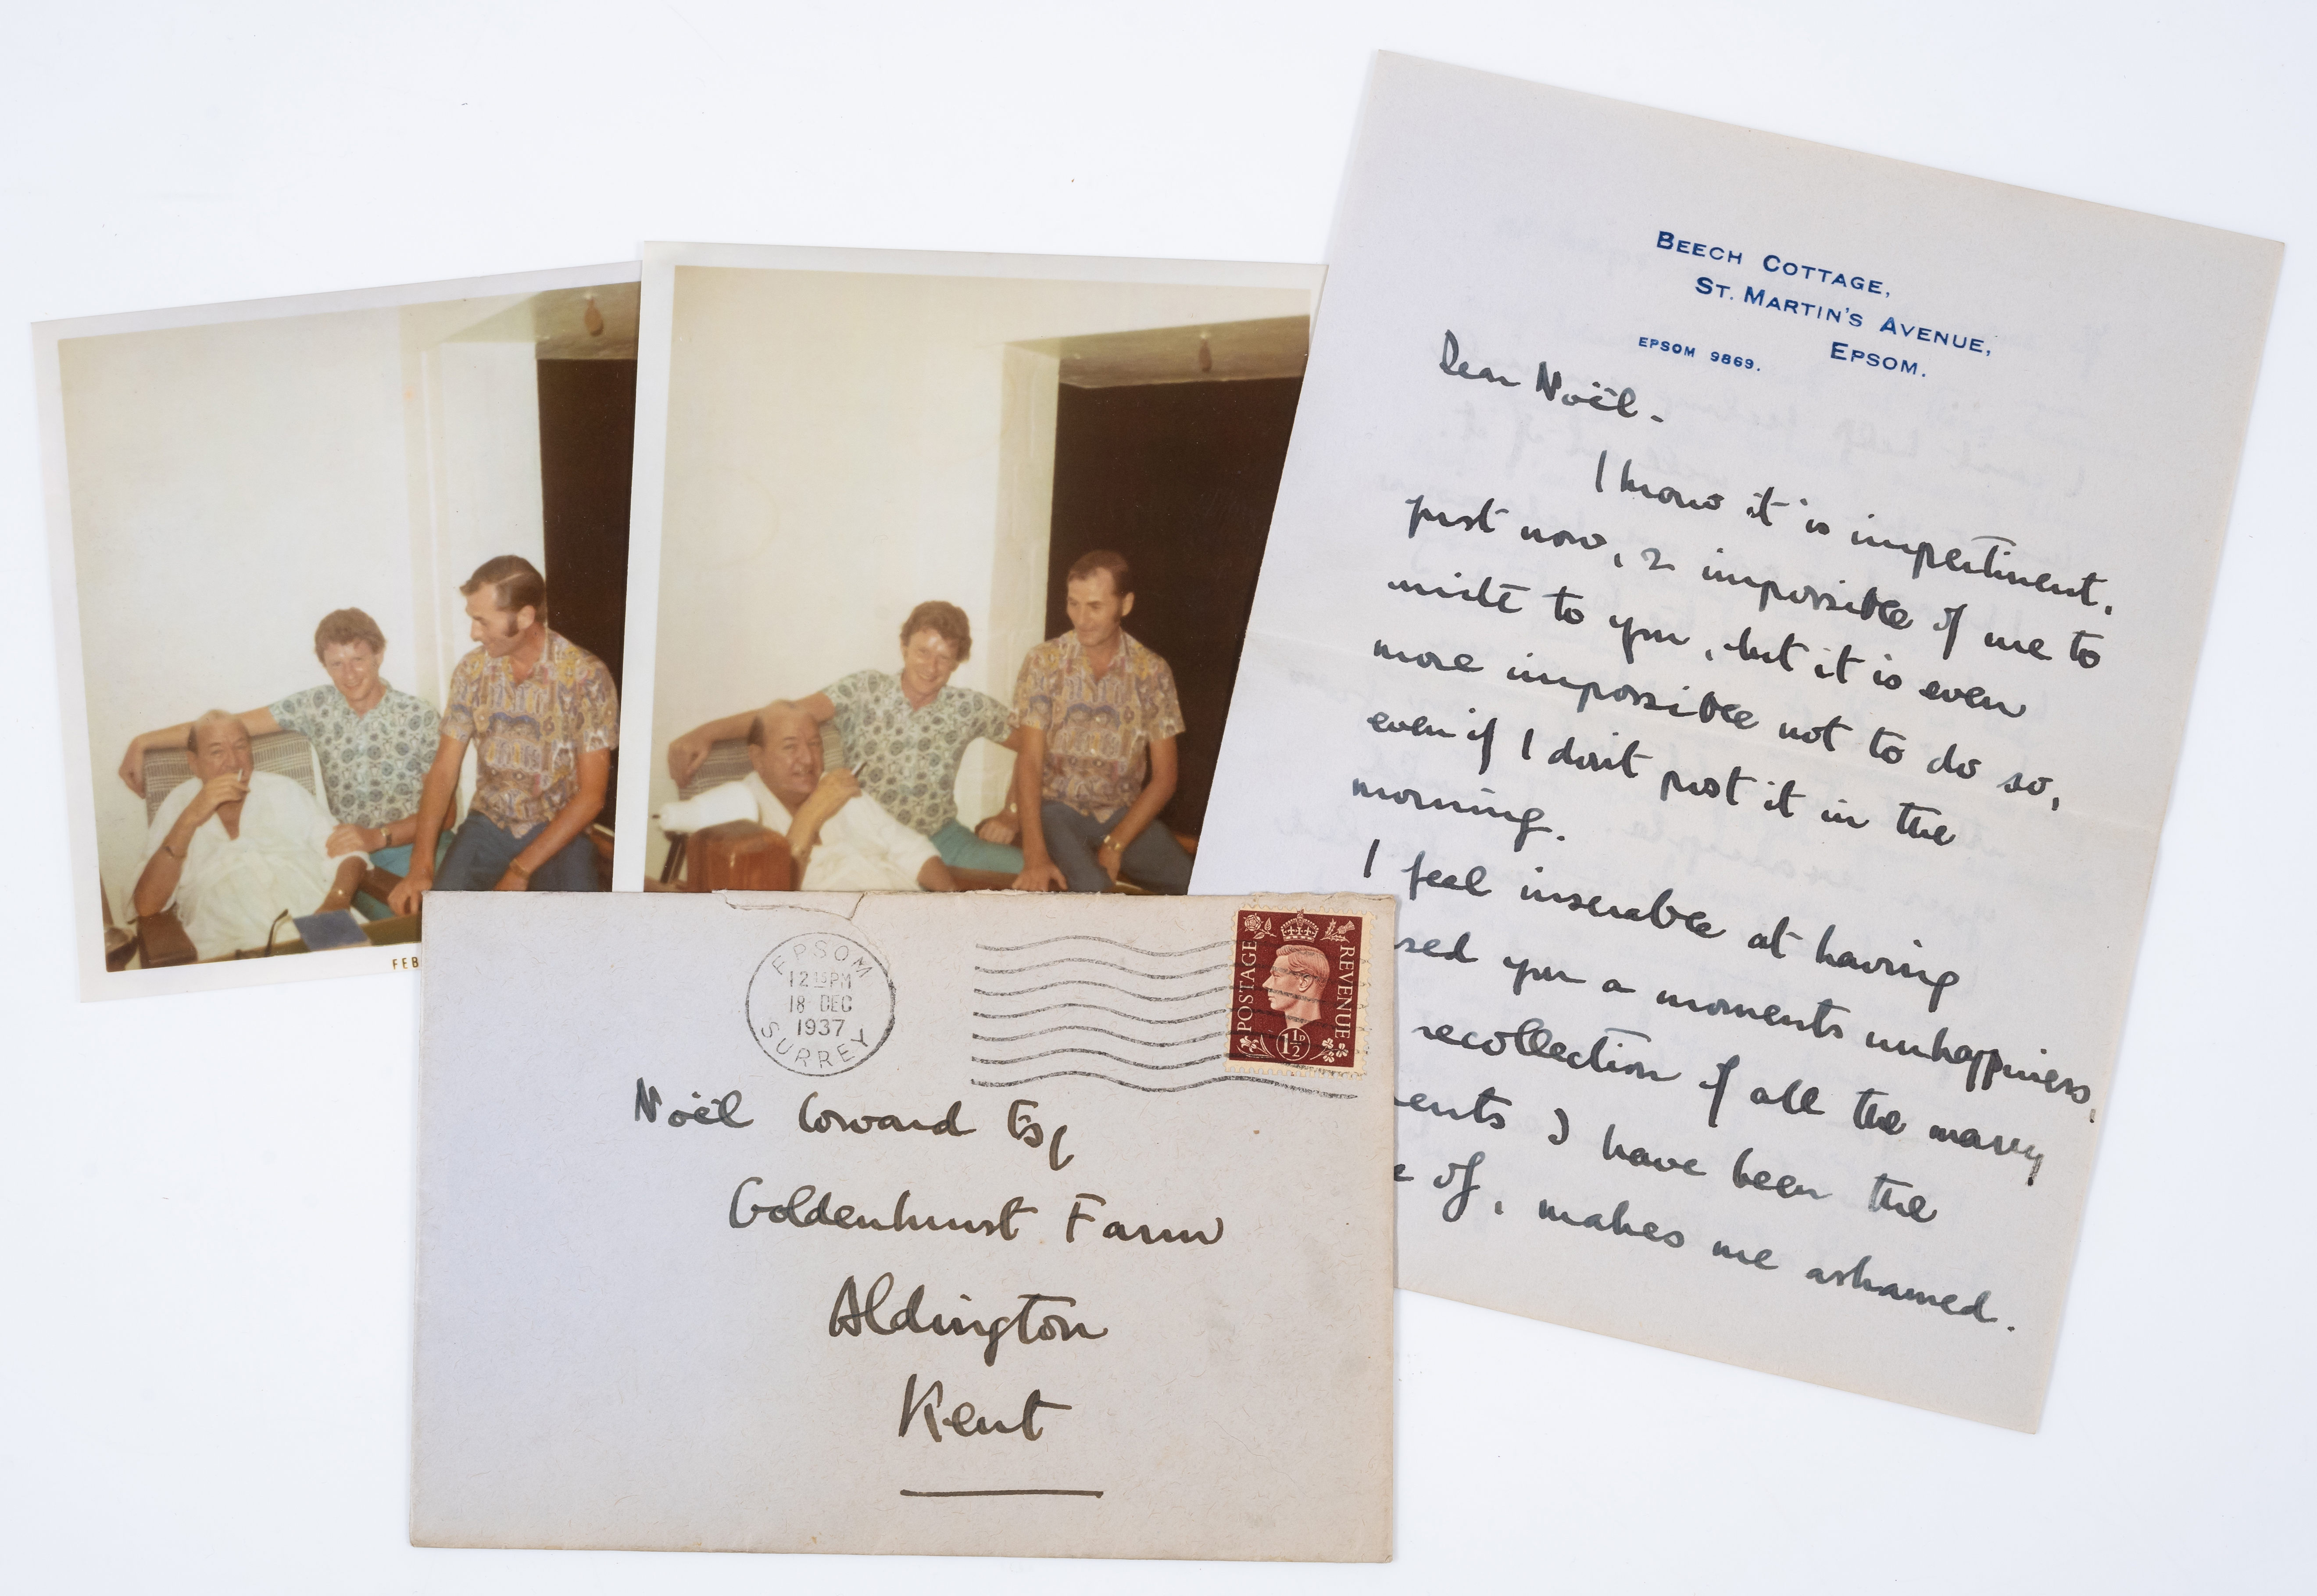 BEECH COTTAGE,
ST. MARTIN'S AVENUE,
EPSOM 9869. EPSOM.
Dear Noël -
I know it is impertinent,
just now, & impossible of me to
write to you, but it is even
more impossible not to do so,
even if I don't post it in the
morning.
I feel miserable at having
sed you a moments unhappiness,
recollection of all the many
ents I have been the
e of, makes me ashamed.
FEB
EPSOM
12 15 PM
18 DEC
1937
SURREY
POSTAGE REVENUE
1½D
Noël Coward Esq
Goldenhurst Farm
Aldington
Kent